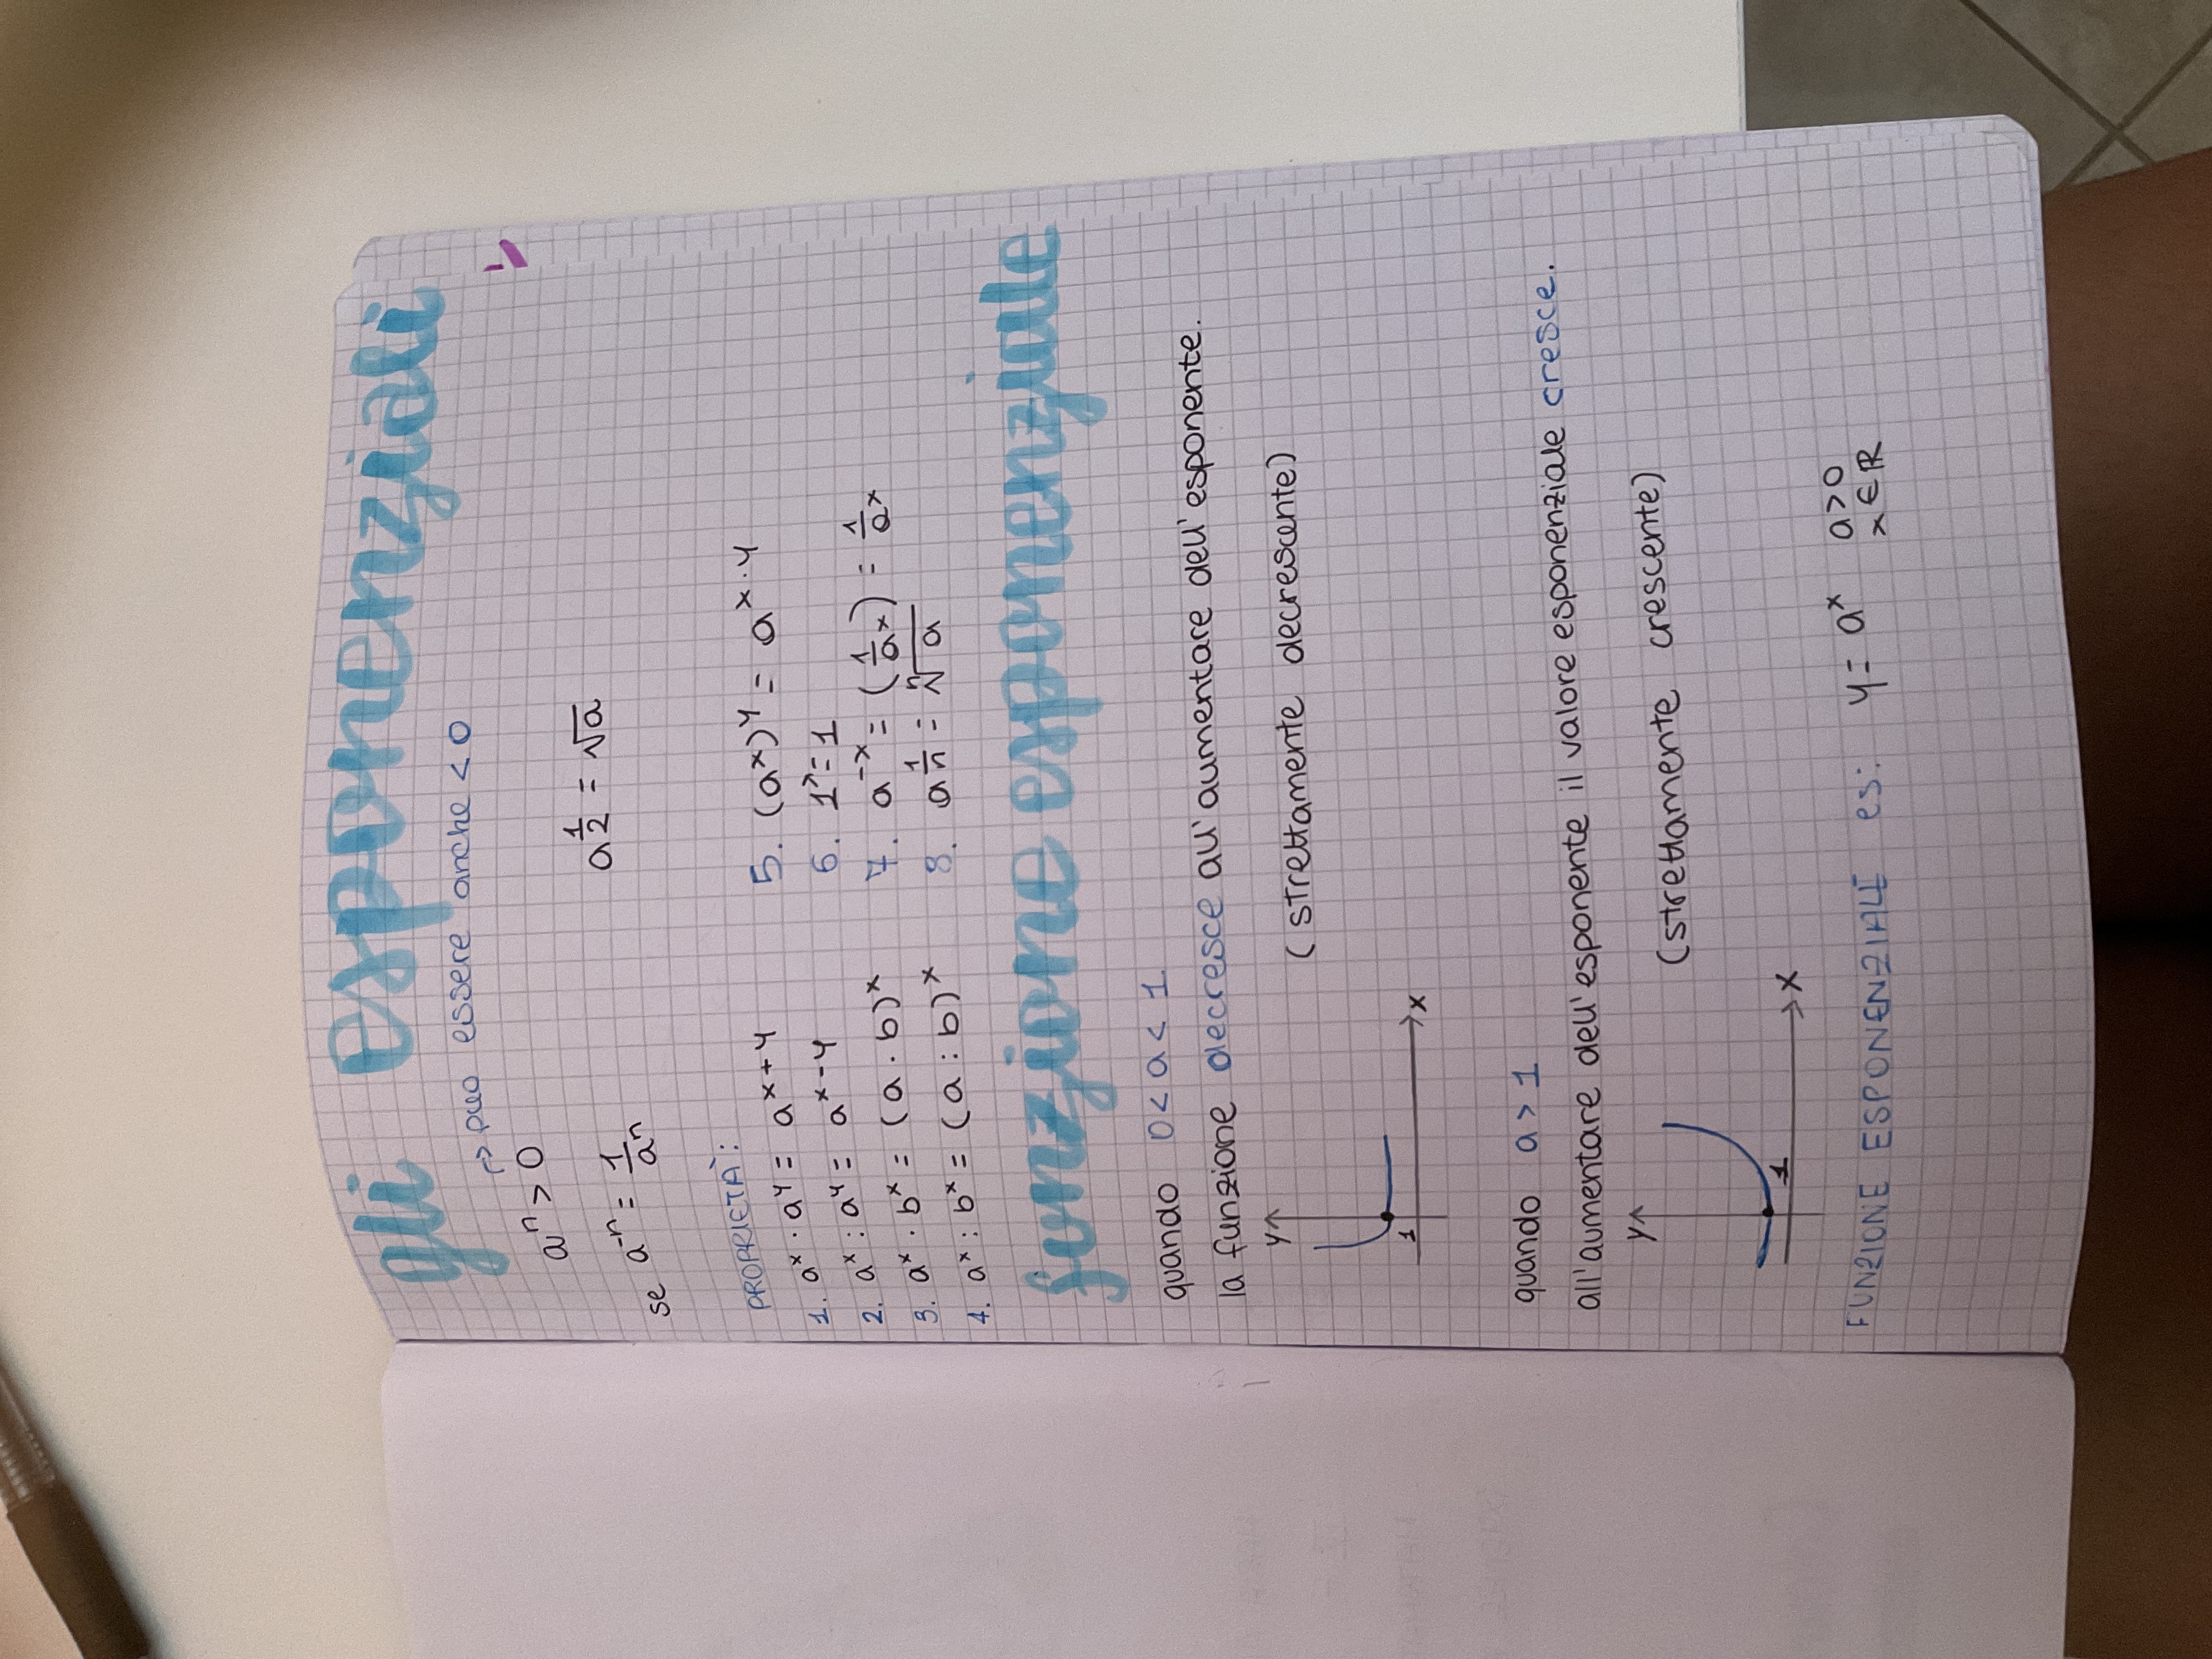 gli esponenziali
↱ può essere anche < 0
aⁿ > 0
se a⁻ⁿ = 1/aⁿ a^(1/2) = √a
PROPRIETÀ:
1. aˣ · aʸ = aˣ⁺ʸ 5. (aˣ)ʸ = aˣ·ʸ
2. aˣ : aʸ = aˣ⁻ʸ 6. 1ˣ = 1
3. aˣ · bˣ = (a · b)ˣ 7. a⁻ˣ = (1/aˣ) = 1/aˣ
4. aˣ : bˣ = (a : b)ˣ 8. a^(1/n) = ⁿ√a
funzione esponenziale
quando 0 < a < 1
la funzione decresce all'aumentare dell'esponente.
y
(strettamente decrescente)
1
x
quando a > 1
all'aumentare dell'esponente il valore esponenziale cresce.
y
(strettamente crescente)
1
x
FUNZIONE ESPONENZIALE es: y = aˣ a > 0
x ∈ ℝ